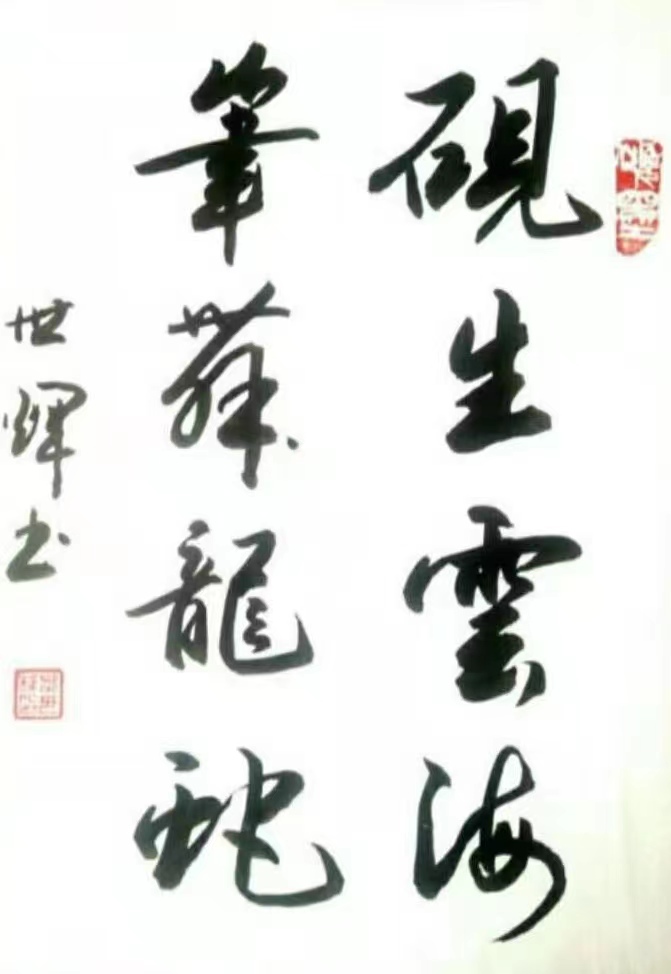 硯生雲海
筆舞龍蛇
世輝书